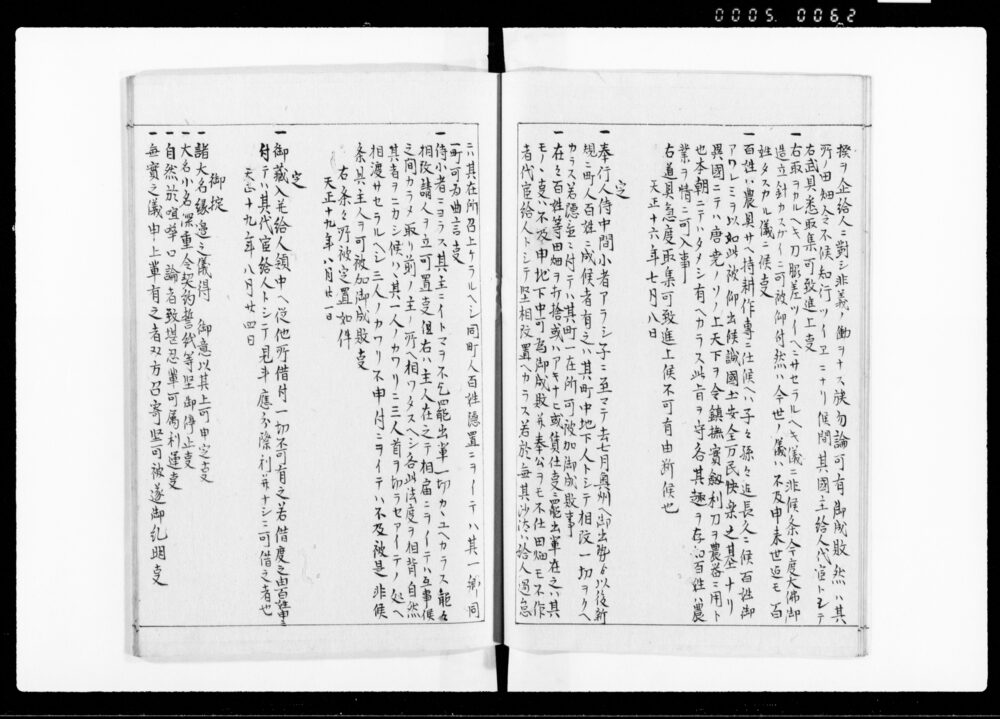 0005. 0062
揆ヲ企給人ニ對シ非義ノ働ヲナス族勿論可有御成敗然ハ其
所ノ田畑令不候知行ツイヱニナリ候間其國主給人代官トシテ
右武具悉取集可致進上事
一右取ヲカルヘキ刀脇差ツイヘニサセラルヘキ儀ニ非候条今度大佛御
造立釘カスカイニ可被仰付然ハ今世ノ儀ハ不及申来世迄モ百
姓タスカル儀ニ候事
一百姓ハ農具サヘ持耕作専ニ仕候ヘハ子々孫々迄長久ニ候百姓御
アワレミヲ以如此被仰出候誠國土安全万民快楽之基ナリ
異國ニテハ唐尭ノソノ上天下ヲ令鎮撫寳劔利刀ヲ農器ニ用ト
也本朝ニテハタメシ有ヘカラス此旨ヲ守各其趣ヲ存知百姓ハ農
業ヲ情ニ可入事
右道具急度取集可致進上候不可有由断候也
天正十六年七月八日
定
一奉行人侍中間小者アラシ子ニ至マテ去七月奥州ヘ御出勢ゟ以後新
規ニ町人百姓ニ成候者有之ハ其町中地下人トシテ相改一切ヲクヘ
カラス若隠置ニ付テハ其町一在所可被加御成敗事
一在々百姓等田畑ヲ打捨或ハアキナヒ或賃仕事ニ罷出輩在之ハ其
モノヽ事ハ不及申地下中可為御成敗并奉公ヲモ不仕田畑モ不作
者代官給人トシテ堅相改置ヘカラス若於無其沙汰ハ給人過怠
ニハ其在所召上ケラルヘシ同町人百姓隠置ニヲイテハ其一郷同
一町可為曲言事
一侍小者ニヨラス其主ニイトマヲ不乞罷出輩一切カヽユヘカラス能々
相改請人ヲ立可置事但右ハ主人在之テ相届ニヲイテハ互事候
之間カラメ取リ前ノ主ノ所ヘ相ワタスヘシ各此法度ヲ相背自然
其者ヲニカシ候ハヽ其一人ノカワリニ三人首ヲ切ラセアイテノ処ヘ
相渡サセラルヘシ三人ノカワリ不申付ニヲイテハ不及被是非候
条其主人ヲ可被加御成敗事
右条々所被定置如件
天正十九年八月廿一日
定
一御藏入并給人領中ヘ従他所借付一切不可有之若借度之由百姓申ニ
付テハ其代官給人トシテ見斗應分際利并ナシニ可借之者也
天正十九年八月廿四日
御掟
一諸大名縁邊之儀得　御意以其上可申定事
一大名小名深重令契約誓𢦤等堅御停止事
一自然於喧嘩口論者致堪忍輩可属利運事
一無實之儀申上輩有之者双方召寄堅可被遂御糺明事